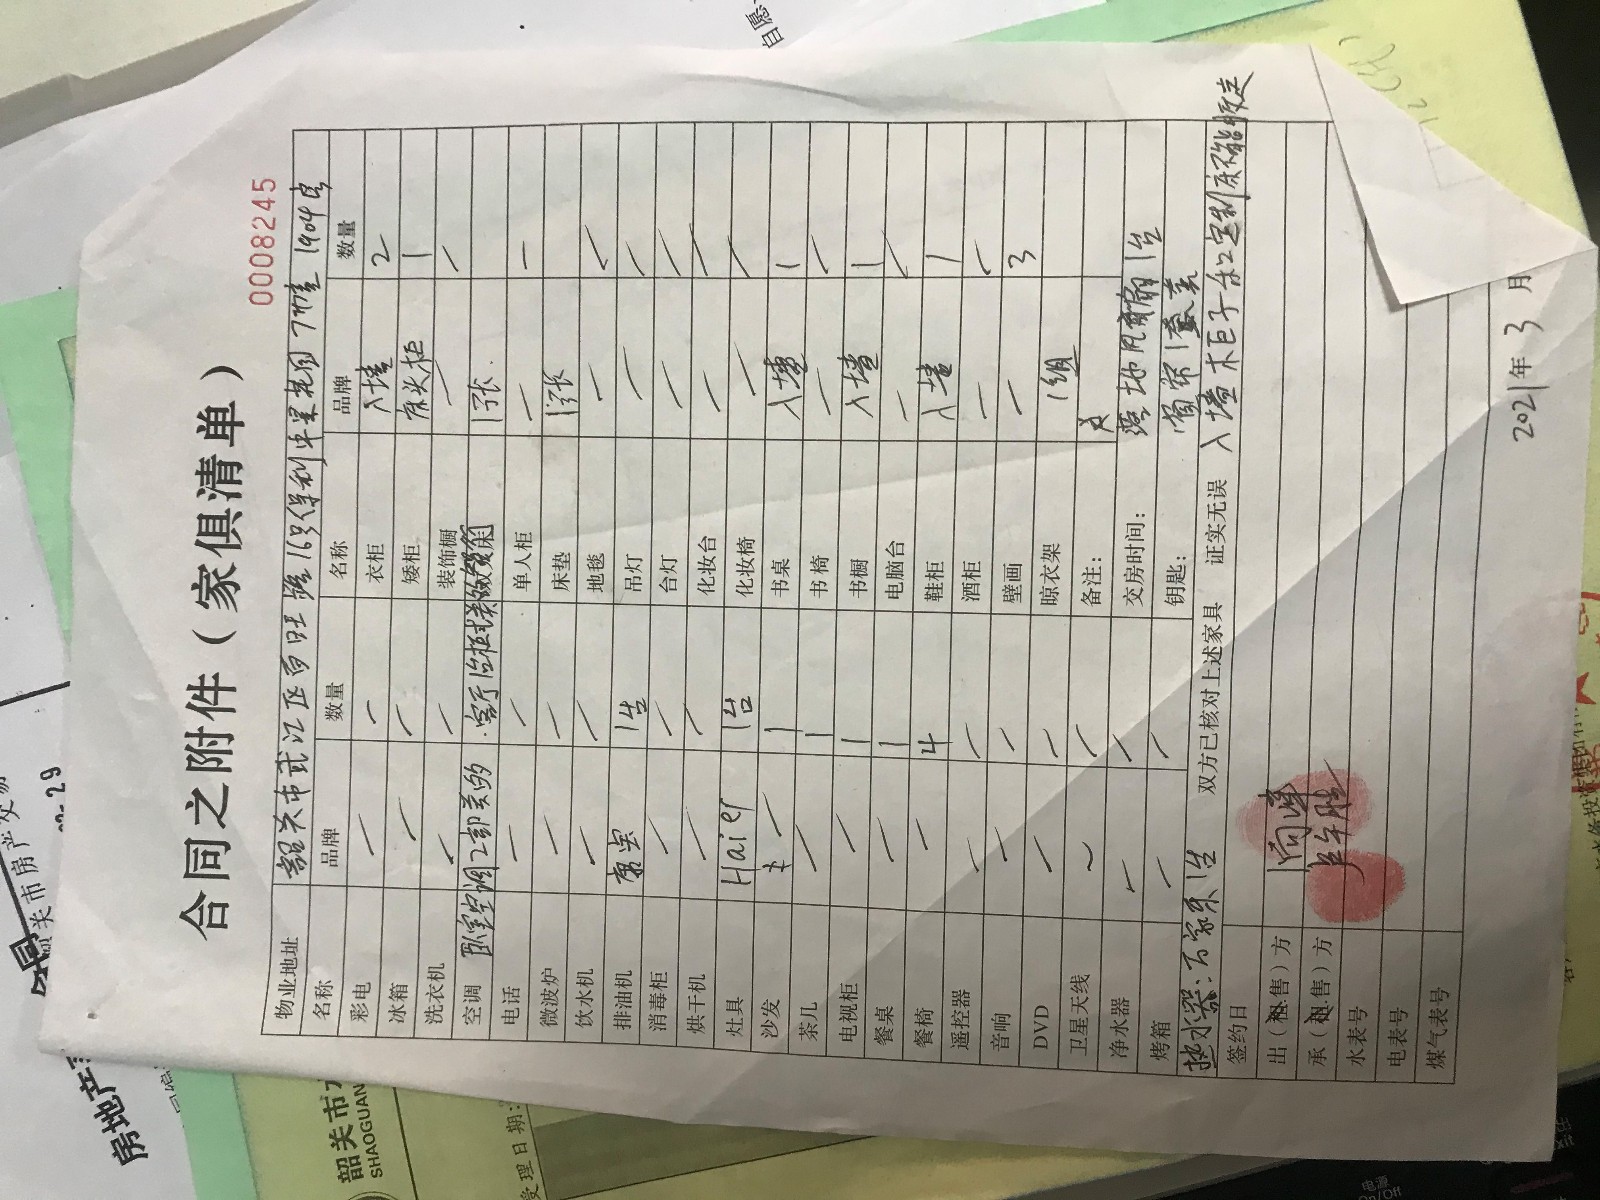 0008245
合同之附件（家俱清单）
物业地址 韶关市武江区百旺路16号保利 花园7幢 1904房
名称 品牌 数量 名称 品牌 数量
彩电 / / 衣柜 入墙 2
冰箱 / / 矮柜 床头柜 1
洗衣机 / / 装饰橱 / /
空调 卧室空调2 的 客厅1台柜 1张
电话 / / 单人柜 / 1
微波炉 / / 床垫 1张
饮水机 / / 地毯 / /
排油机 康宝 1台 吊灯 / /
消毒柜 / / 台灯 / /
烘干机 / / 化妆台 / /
灶具 Haier 1台 化妆椅 / /
沙发 木 1 书桌 入墙 1
茶几 / 1 书椅 / /
电视柜 / 1 书橱 入墙 1
餐桌 / 1 电脑台 / /
餐椅 / 4 鞋柜 入墙 1
遥控器 / / 酒柜 / /
音响 / / 壁画 / 3
DVD / / 晾衣架 1组
卫星天线 ~ / 备注：
净水器 / / 交房时间： 落地风扇1台
烤箱 / / 钥匙： 窗帘1套
热水器：万家乐1台 双方已核对上述家具 证实无误 入墙木巨子和定制床不能
签约日
出（租.售）方
承（租.售）方
水表号
电表号
煤气表号
2021年3月
韶关市
SHAOGUAN
受理日期：
房地产
关市房产交易
29
电源
On/Off